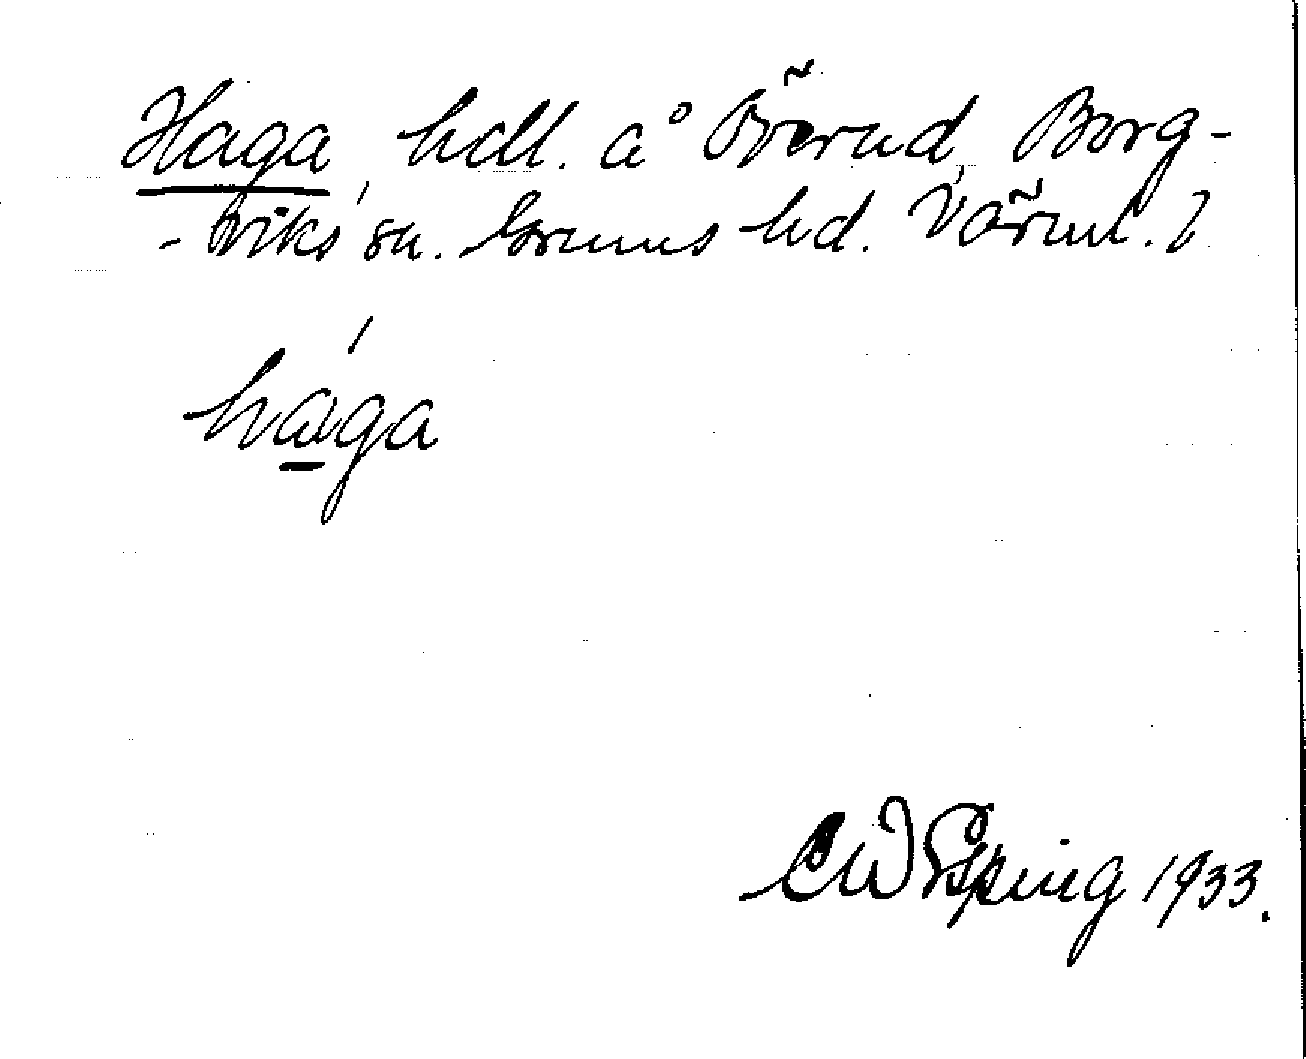 Haga, hdl. å Överud, Borg-
-viks sn. Grums hd. Värml. l
håga
CW Epping 1933.